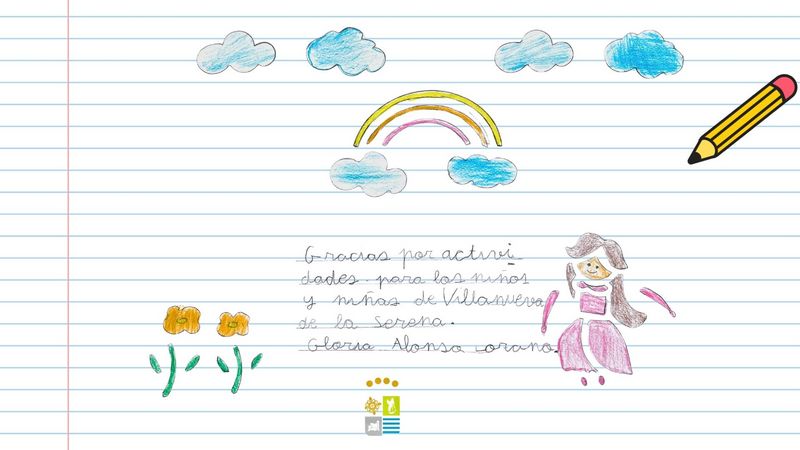 Gracias por activi
dades para los niños
y niñas de Villanueva
de la Serena.
Gloria Alonso